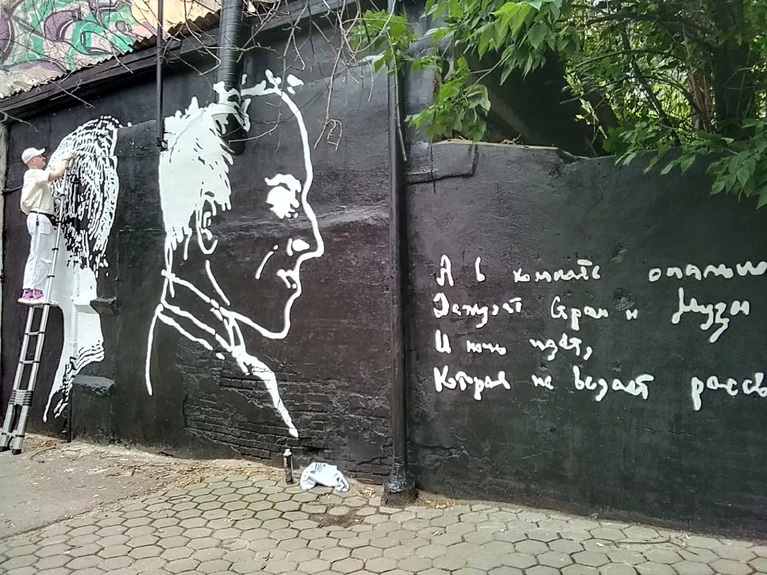 А в комнате опально
Дежурят Страх и Муза
И ночь идёт,
Которая не ведает рассв